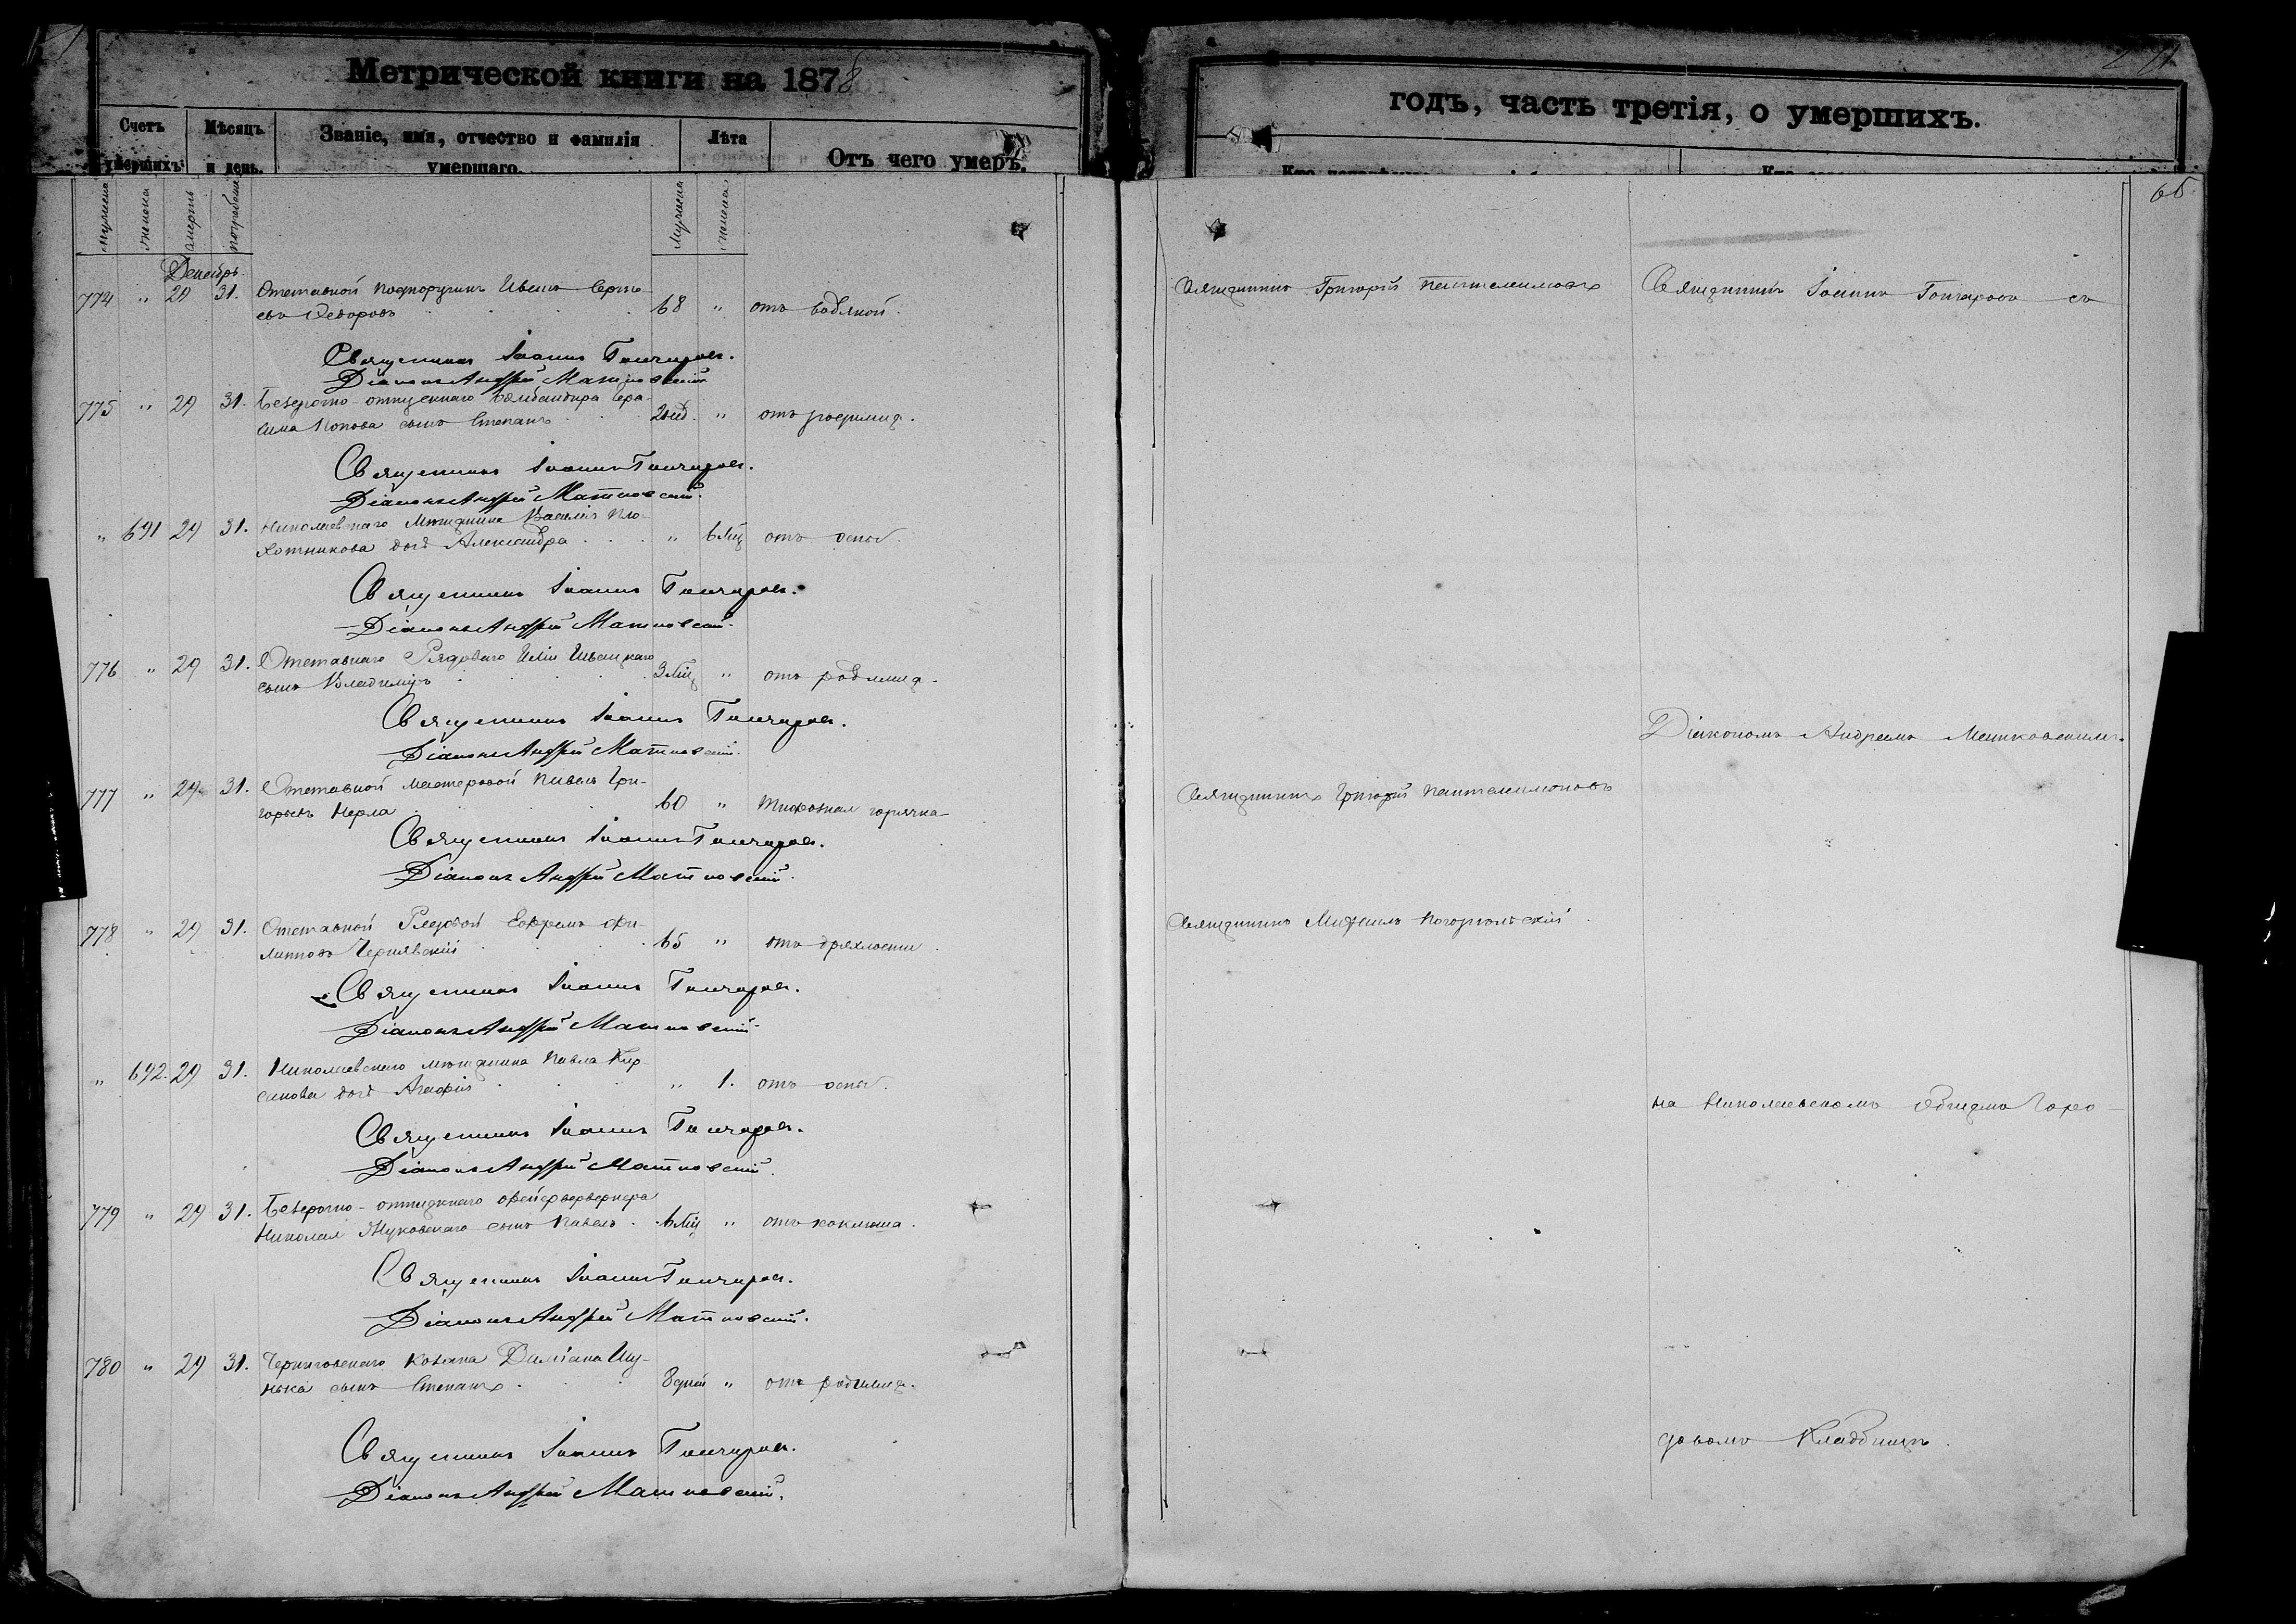 Метрической книги на 1878
Счетъ умершихъ.
Мѣсяцъ и день.
Званіе, имя, отчество и фамилія умершаго.
Лѣта
Отъ чего умеръ.
Мужеска
Женска
Смерть
Погребенія
Мужеска
Женска
Декабрь.
774 " 29 31. Отставной Подпоручикъ Иванъ Сергѣ-
евъ Ѳедоровъ 68 " отъ водяной.
Священникъ Іоаннъ Гончаровъ.
Діаконъ Андрей Матковскій
775 " 29 31. Безсрочно-отпускнаго Бомбандира Гера-
сима Попова сынъ Степанъ 2 нед. " отъ родимца.
Священникъ Іоаннъ Гончаровъ.
Діаконъ Андрей Матковскій.
" 691 29 31. Николаевскаго Мѣщанина Василія Пло-
хотникова дочь Александра " 6 Мѣц отъ оспы.
Священникъ Іоаннъ Гончаровъ.
Діаконъ Андрей Матковскій.
776 " 29 31. Отставнаго Рядоваго Иліи
сынъ Владиміръ 3 Мѣц " отъ родимца.
Священникъ Іоаннъ Гончаровъ.
Діаконъ Андрей Матковскій.
777 " 29 31. Отставной мастеровой Павелъ Гри-
горьевъ 60 " Тифозная горячка
Священникъ Іоаннъ Гончаровъ.
Діаконъ Андрей Матковскій.
778 " 29 31. Отставной Рядовой Ефремъ Фи-
липповъ Чернявскій 65 " отъ дряхлости.
Священникъ Іоаннъ Гончаровъ.
Діаконъ Андрей Матковскій
" 692. 29 31. Николаевскаго мѣщанина Павла Кир-
санова дочь Агафія " 1. отъ оспы.
Священникъ Іоаннъ Гончаровъ.
Діаконъ Андрей Матковскій.
779 " 29 31. Безсрочно-отпускнаго фейерверкера
Николая Жуковскаго сынъ Павелъ. 6 Мѣц " отъ коклюша.
Священникъ Іоаннъ Гончаровъ.
Діаконъ Андрей Матковскій.
780 " 29 31. Черниговскаго козака Даміана
сынъ Степанъ. 8 дней " отъ родимца.
Священникъ Іоаннъ Гончаровъ.
Діаконъ Андрей Матковскій.
годъ, часть третія, о умершихъ.
65
Священникъ Григорій Пантелимоновъ
Священникъ Іоаннъ Гончаровъ съ
Діакономъ Андреемъ Матковскимъ.
Священникъ Григорій Пантелимоновъ
Священникъ Михаилъ Погорѣльскій
на Николаевскомъ Общемъ Горо-
довомъ Кладбищѣ.